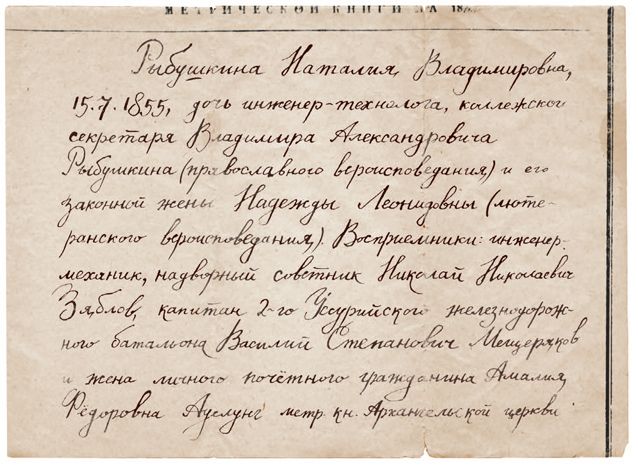 МЕТРИЧЕСКОЙ КНИГИ ЗА 18
Рыбушкина Наталия Владимировна,
15.7.1855, дочь инженер-технолога, коллежского
секретаря Владимира Александровича
Рыбушкина (православного вероисповедания) и его
законной жены Надежды Леонидовны (люте-
ранского вероисповедания). Восприемники: инженер-
механик, надворный советник Николай Николаевич
Зяблов, капитан 2-го Уссурийского железнодорож-
ного батальона Василий Степанович Мещеряков
и жена личного почётного гражданина Амалия
Фёдоровна Ауслунг метр. кн. Архангельской церкви